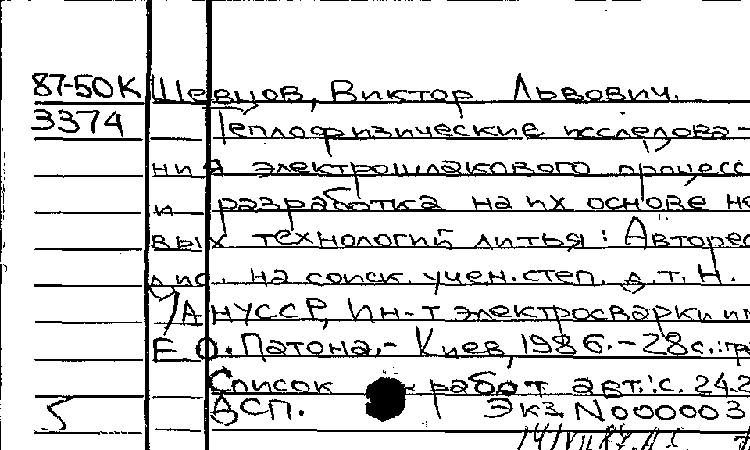 87-50К Шевцов, Виктор Львович.
3374 Теплофизические исследова-
ния электрошлакового процесс
и разработка на их основе но
вых технологий литья: Авторе
дис. на соиск. учен. степ. д.т.н.
/АН УССР, Ин-т электросварки им
Е.О. Патона,- Киев, 1986.-28с.:гр
Список работ авт.: с. 24.2
5 ДСП. Экз. N000003